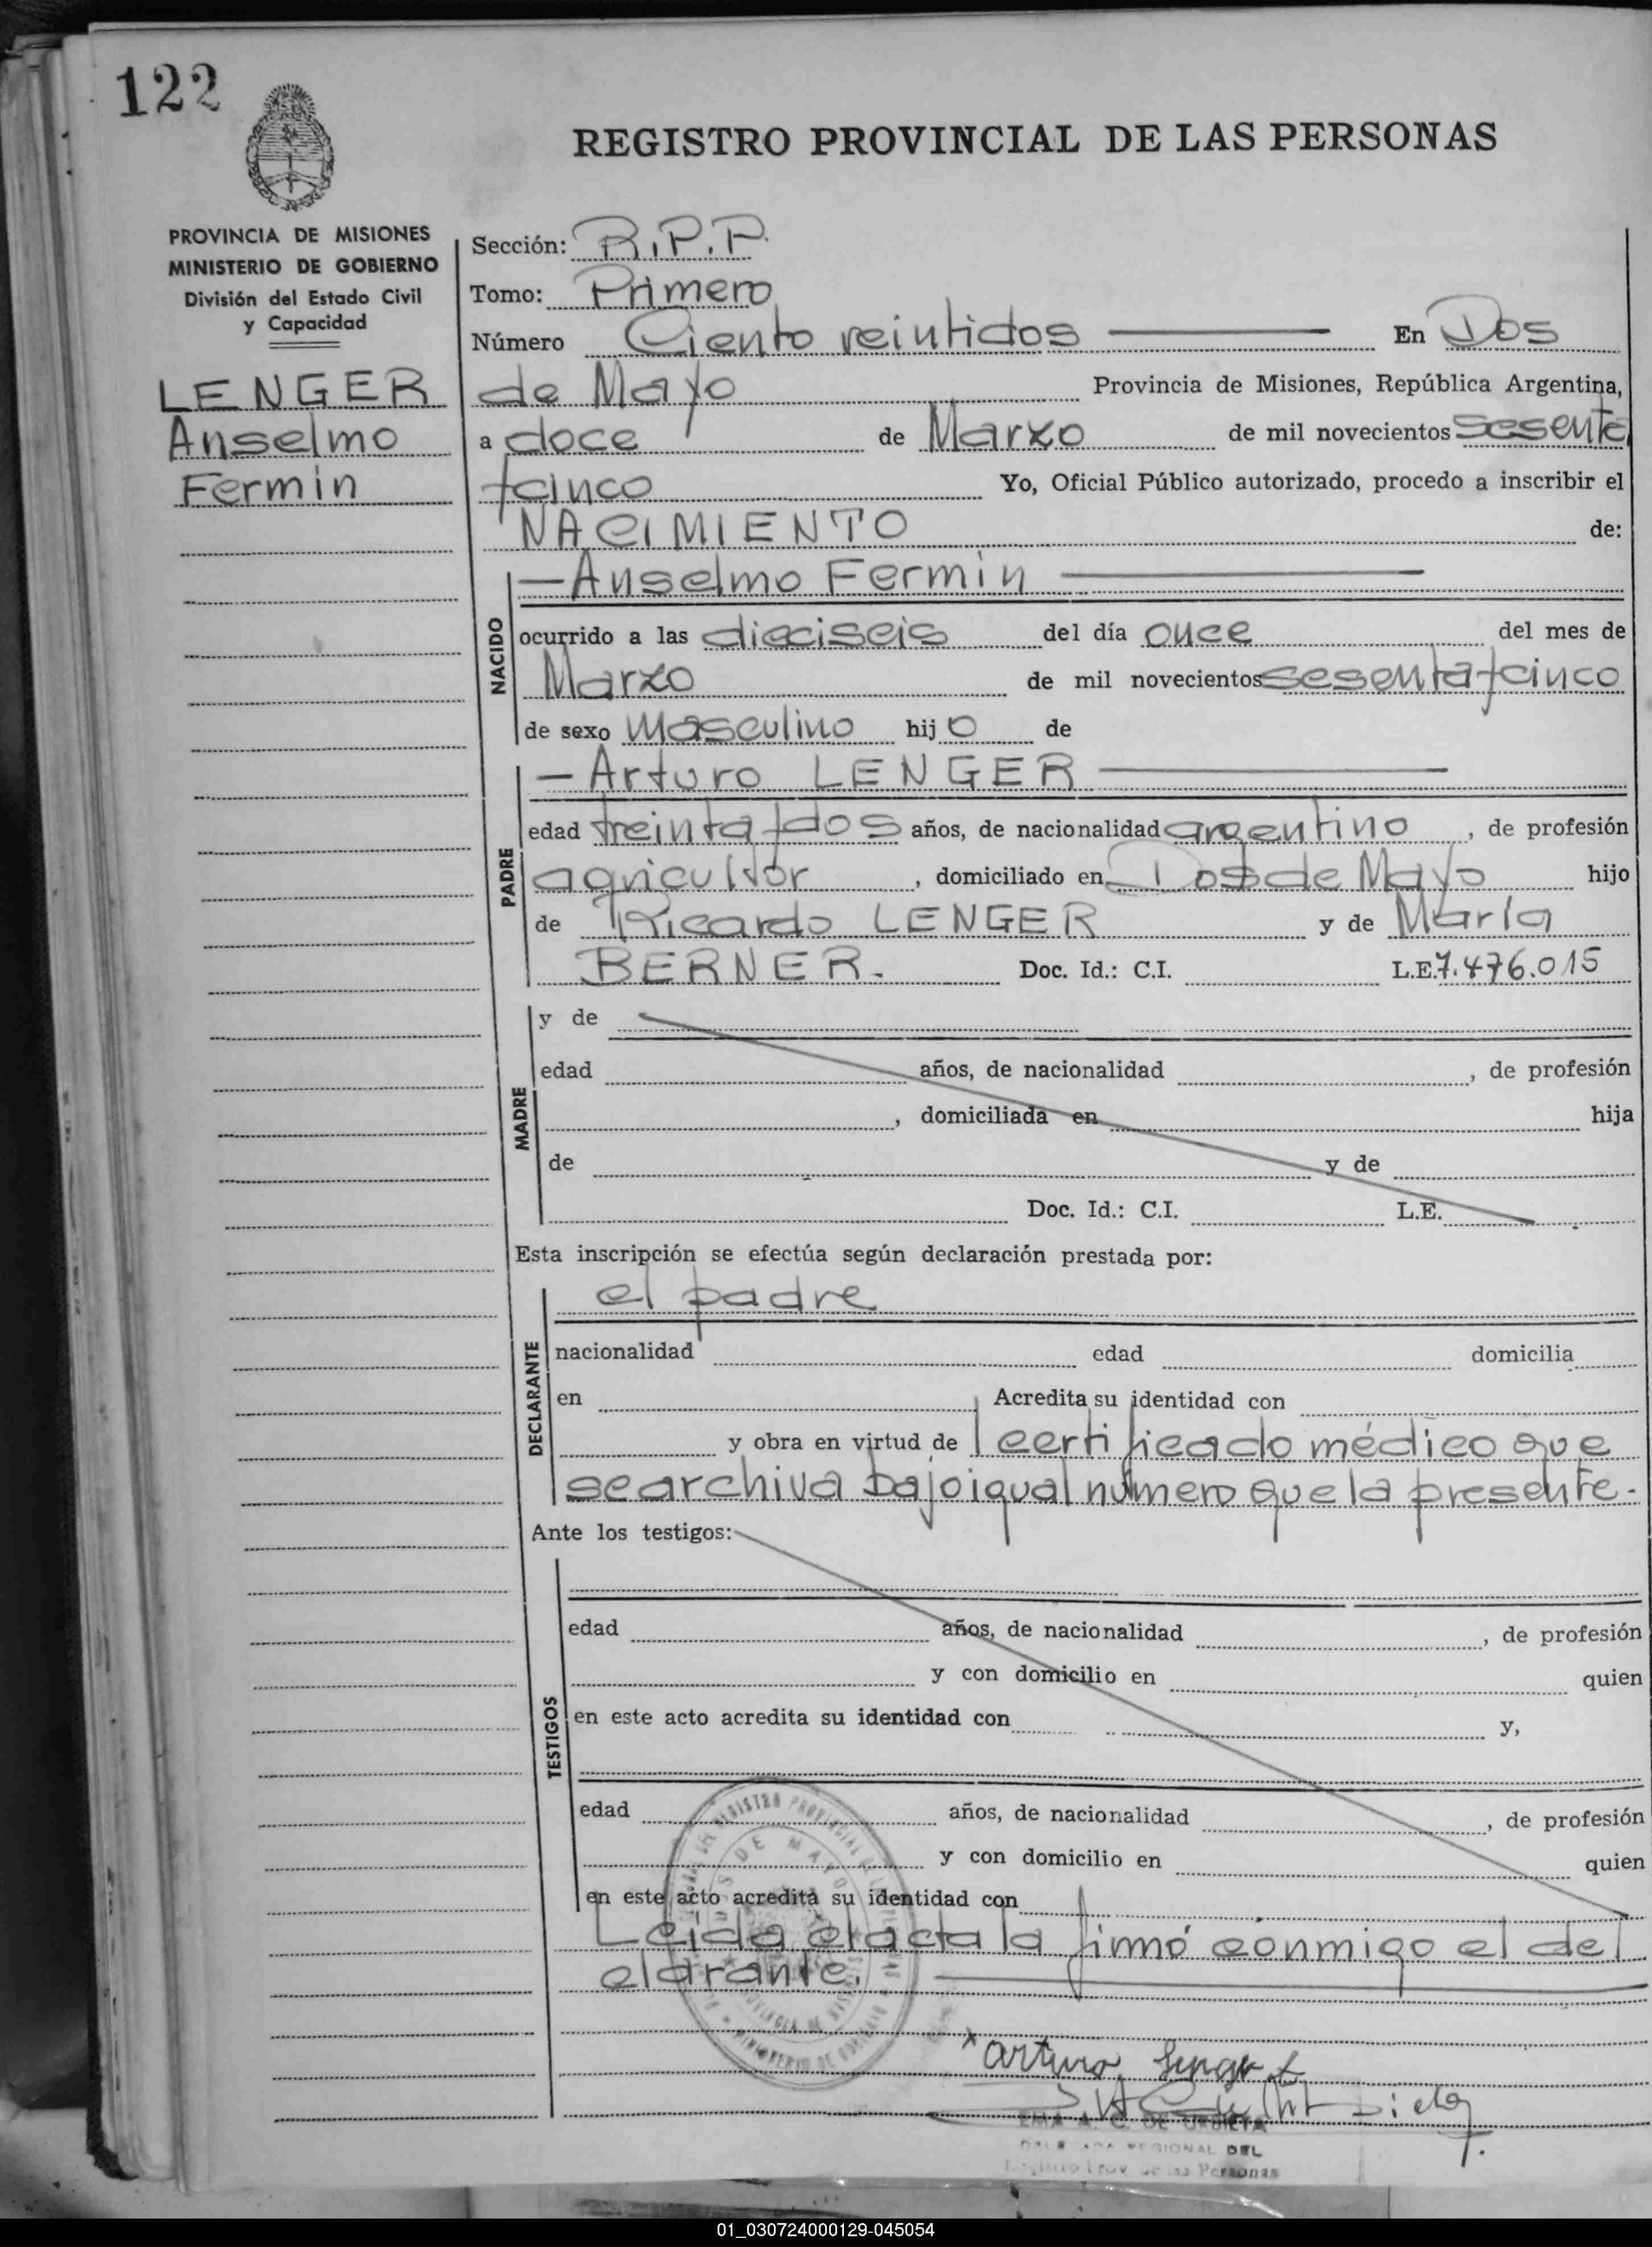 122
REGISTRO PROVINCIAL DE LAS PERSONAS
PROVINCIA DE MISIONES
MINISTERIO DE GOBIERNO
División del Estado Civil
y Capacidad
LENGER
Anselmo
Fermin
Sección: R.P.P.
Tomo: Primero
Número Ciento veintidos En Dos
de Mayo Provincia de Misiones, República Argentina,
a doce de Marzo de mil novecientos sesenta
y cinco Yo, Oficial Público autorizado, procedo a inscribir el
NACIMIENTO de:
NACIDO
— Anselmo Fermin —
ocurrido a las dieciseis del día once del mes de
Marzo de mil novecientos sesenta y cinco
de sexo Masculino hijo de
PADRE
— Arturo LENGER —
edad treinta y dos años, de nacionalidad argentino, de profesión
agricultor, domiciliado en Dos de Mayo hijo
de Ricardo LENGER y de María
BERNER. Doc. Id.: C.I. L.E. 7.476.015
MADRE
y de
edad años, de nacionalidad , de profesión
, domiciliada en hija
de y de
Doc. Id.: C.I. L.E.
Esta inscripción se efectúa según declaración prestada por:
DECLARANTE
el padre
nacionalidad edad domicilia
en Acredita su identidad con
y obra en virtud de certificado médico que
se archiva bajo igual número que la presente.-
Ante los testigos:
TESTIGOS
edad años, de nacionalidad , de profesión
y con domicilio en quien
en este acto acredita su identidad con y,
edad años, de nacionalidad , de profesión
y con domicilio en quien
en este acto acredita su identidad con
Leida el acta la firmó conmigo el del
clarante.
REGISTRO PROVINCIAL DE LAS PERSONAS
DOS DE MAYO
PROVINCIA DE MISIONES
MINISTERIO DE GOBIERNO
x Arturo Lenger
EMA A. C. DE URBIETA
DELEGADA REGIONAL DEL
Registro Prov de las Personas
01_030724000129-045054